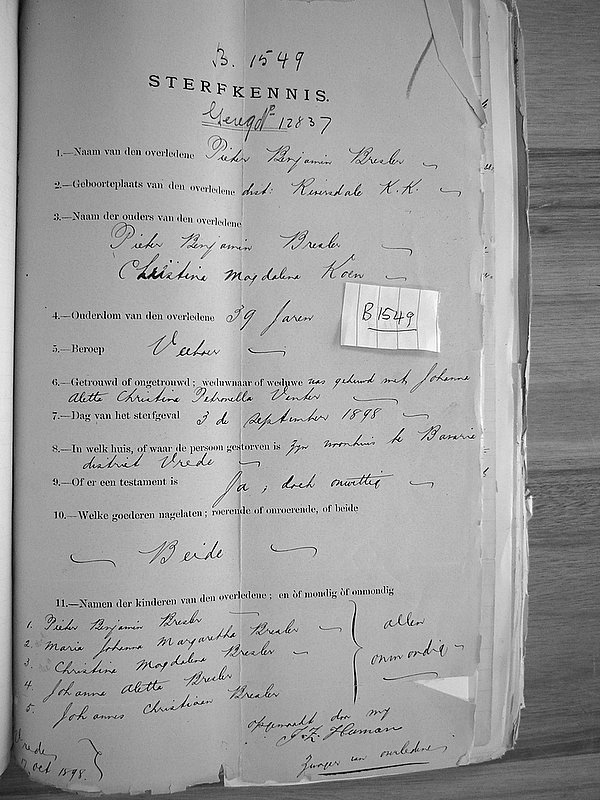 B. 1549
STERFKENNIS.
12837
1.—Naam van den overledene Pieter Benjamin Bresler
2.—Geboorteplaats van den overledene dist: Riversdale K.K.
3.—Naam der ouders van den overledene
Pieter Benjamin Bresler
Christina Magdalena Koen
4.—Ouderdom van den overledene 39 Jaren
B 1549
5.—Beroep Veeboer
6.—Getrouwd of ongetrouwd; weduwnaar of weduwe was gehuwd met Johanna
Aletta Christina Petronella Venter
7.—Dag van het sterfgeval 3 de September 1898
8.—In welk huis, of waar de persoon gestorven is Zyn woonhuis te Bavaria
district Vrede
9.—Of er een testament is Ja; doch onwettig
10.—Welke goederen nagelaten; roerende of onroerende, of beide
Beide
11.—Namen der kinderen van den overledene; en òf mondig òf onmondig
1. Pieter Benjamin Bresler
2. Maria Johanna Margaretha Bresler
3. Christina Magdalena Bresler
4. Johanna Aletta Bresler
5. Johannes Christiaan Bresler
allen
onmondig
opgemaakt door my
Human
Zwager van overledene
Vrede
oct 1898.